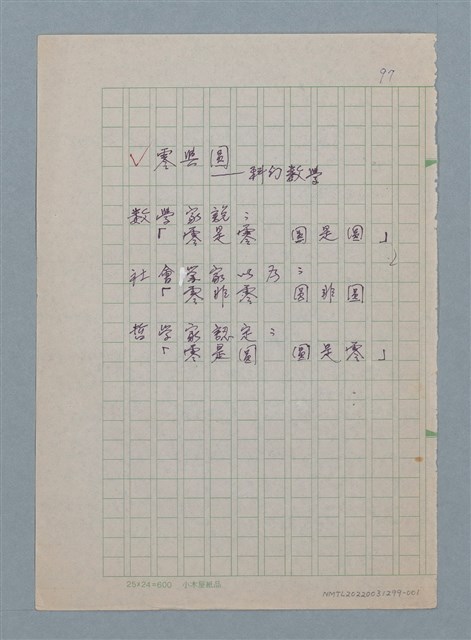 97
✓零與圓
——科幻數學
数学家說：
「零是零 圓是圓」
社會学家以为：
「零非零 圓非圓
哲学家認定：
「零是圓 圓是零」
25×24=600 小木屋紙品
NMTL20220031299-001